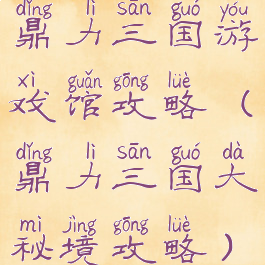 dǐng lì sān guó yóu
鼎力三国游
xì guǎn gōng lüè
戏馆攻略（
dǐng lì sān guó dà
鼎力三国大
mì jìng gōng lüè
秘境攻略）